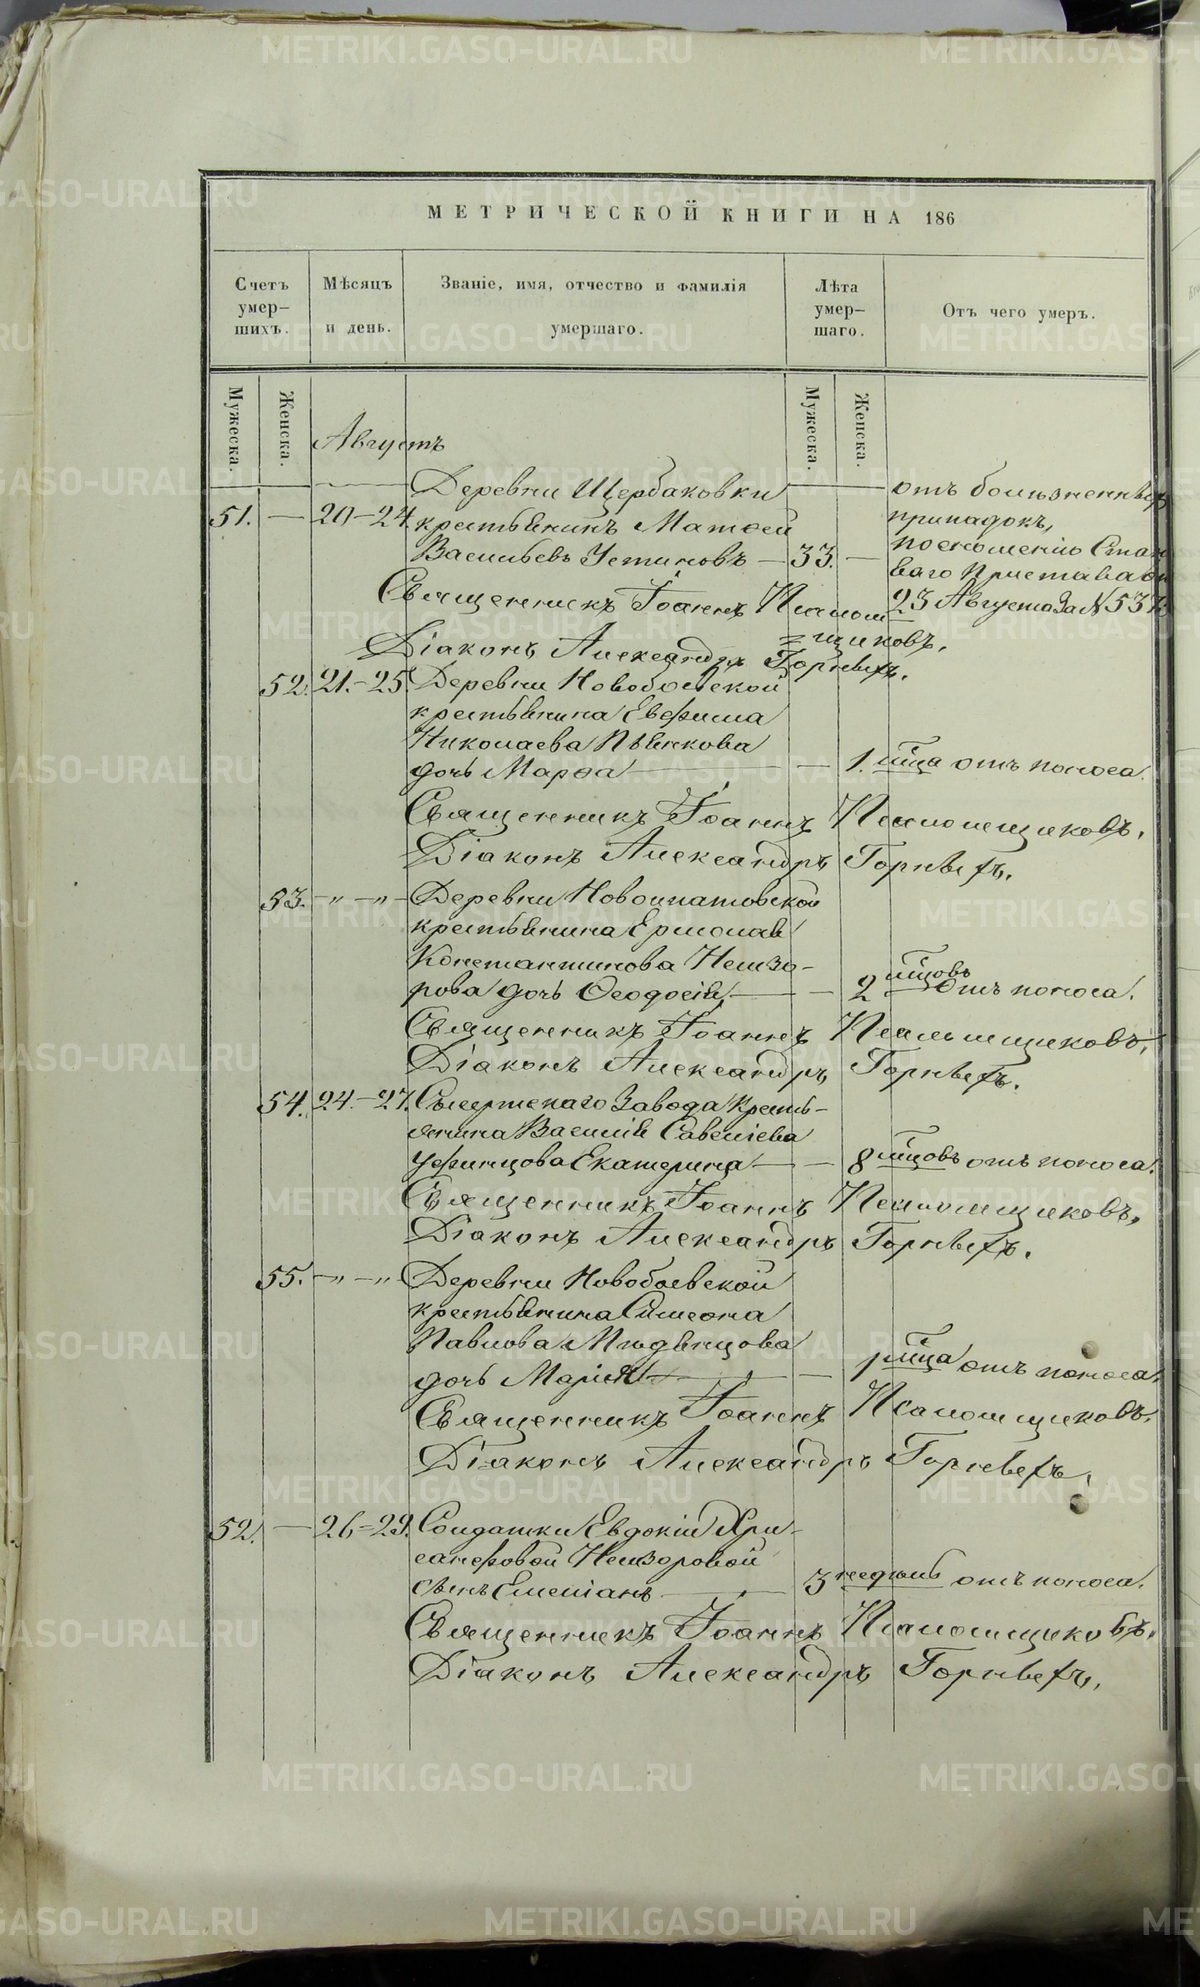 МЕТРИЧЕСКОЙ КНИГИ НА 186
Счетъ умер-шихъ.
Мѣсяцъ и день.
Званіе, имя, отчество и фамилія умершаго.
Лѣта умер-шаго.
Отъ чего умеръ.
Мужеска. Женска. Мужеска. Женска.
Августъ
Деревни Щербаковки отъ болѣзненныхъ
51. — 20-24. крестьянинъ Матѳей припадокъ,
Васильевъ Устиновъ — 33. — по сношенію Стан
ваго Пристава
Священникъ Іоаннъ Псалом 23 Августа за № 537
=щиковъ.
Діаконъ Александръ
52. 21.-25. Деревни Новобоевской
крестьянина Евфима
Николаева Пьянкова
дочь Марѳа — 1. мѣсца отъ поноса.
Священникъ Іоаннъ Псаломщиковъ.
Діаконъ Александръ
53. -„-„- Деревни Новоипатовской
крестьянина Ермолая
Константинова Немзо-
рова дочь Ѳеодосія — 2 мѣсцовъ отъ поноса.
Священникъ Іоаннъ Псаломщиковъ.
Діаконъ Александръ
54. 24.-27. Сысертскаго Завода Кресть-
янина Василія Савеліева
Уфимцова Екатерина — 8 мѣсцовъ отъ поноса.
Священникъ Іоаннъ Псаломщиковъ.
Діаконъ Александръ
55. -„-„ Деревни Новобоевской
крестьянина Симеона
Павлова
дочь Марія — 1 мѣсца отъ поноса.
Священникъ Іоаннъ Псаломщиковъ.
Діаконъ Александръ
52. — 26-29. Солдатки Евдокіи Хри-
санфовой Немзоровой
сынъ Емеліанъ — 3 недѣль отъ поноса.
Священникъ Іоаннъ Псаломщиковъ.
Діаконъ Александръ
METRIKI.GASO-URAL.RU